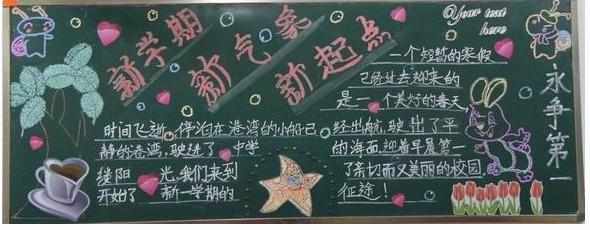 新学期
新气象
新起点
Your text
here
一个短暂的寒假
已经过去,迎来的
是一个美好的春天
永争第一
时间飞逝,停泊在港湾的小船已经出航,驶出了平
静的港湾,驶进了中学的海面,迎着早晨第一
缕阳光,我们来到了亲切而又美丽的校园,
开始了新一学期的征途!